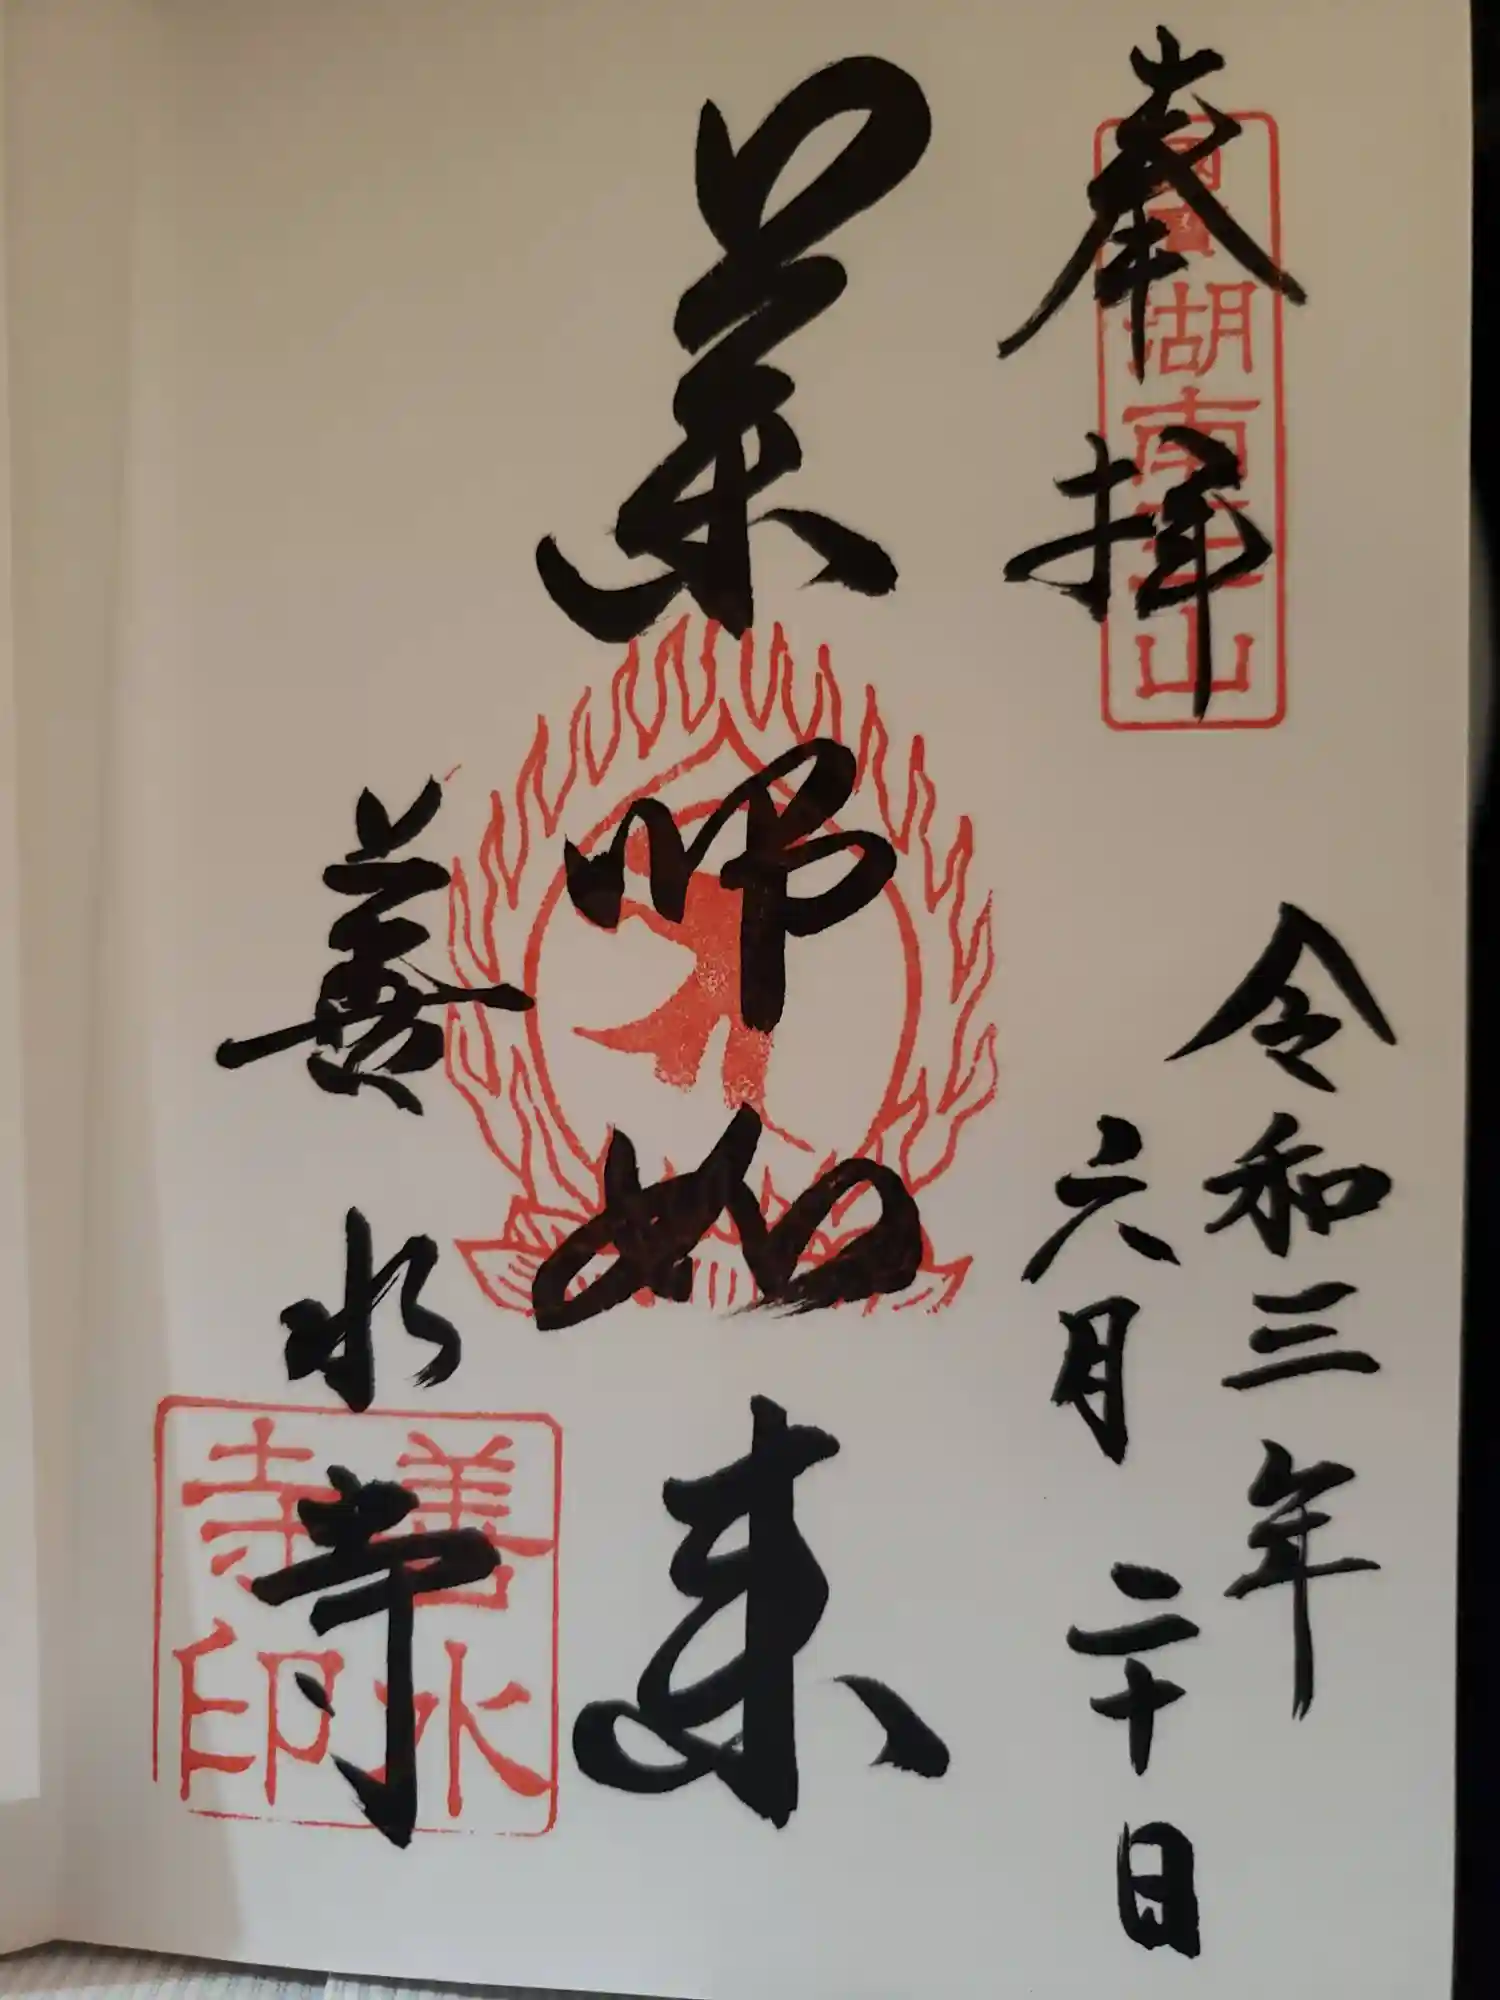 奉拝
國寶湖南三山
令和三年
六月二十日
薬师如来
善水寺
善水寺印